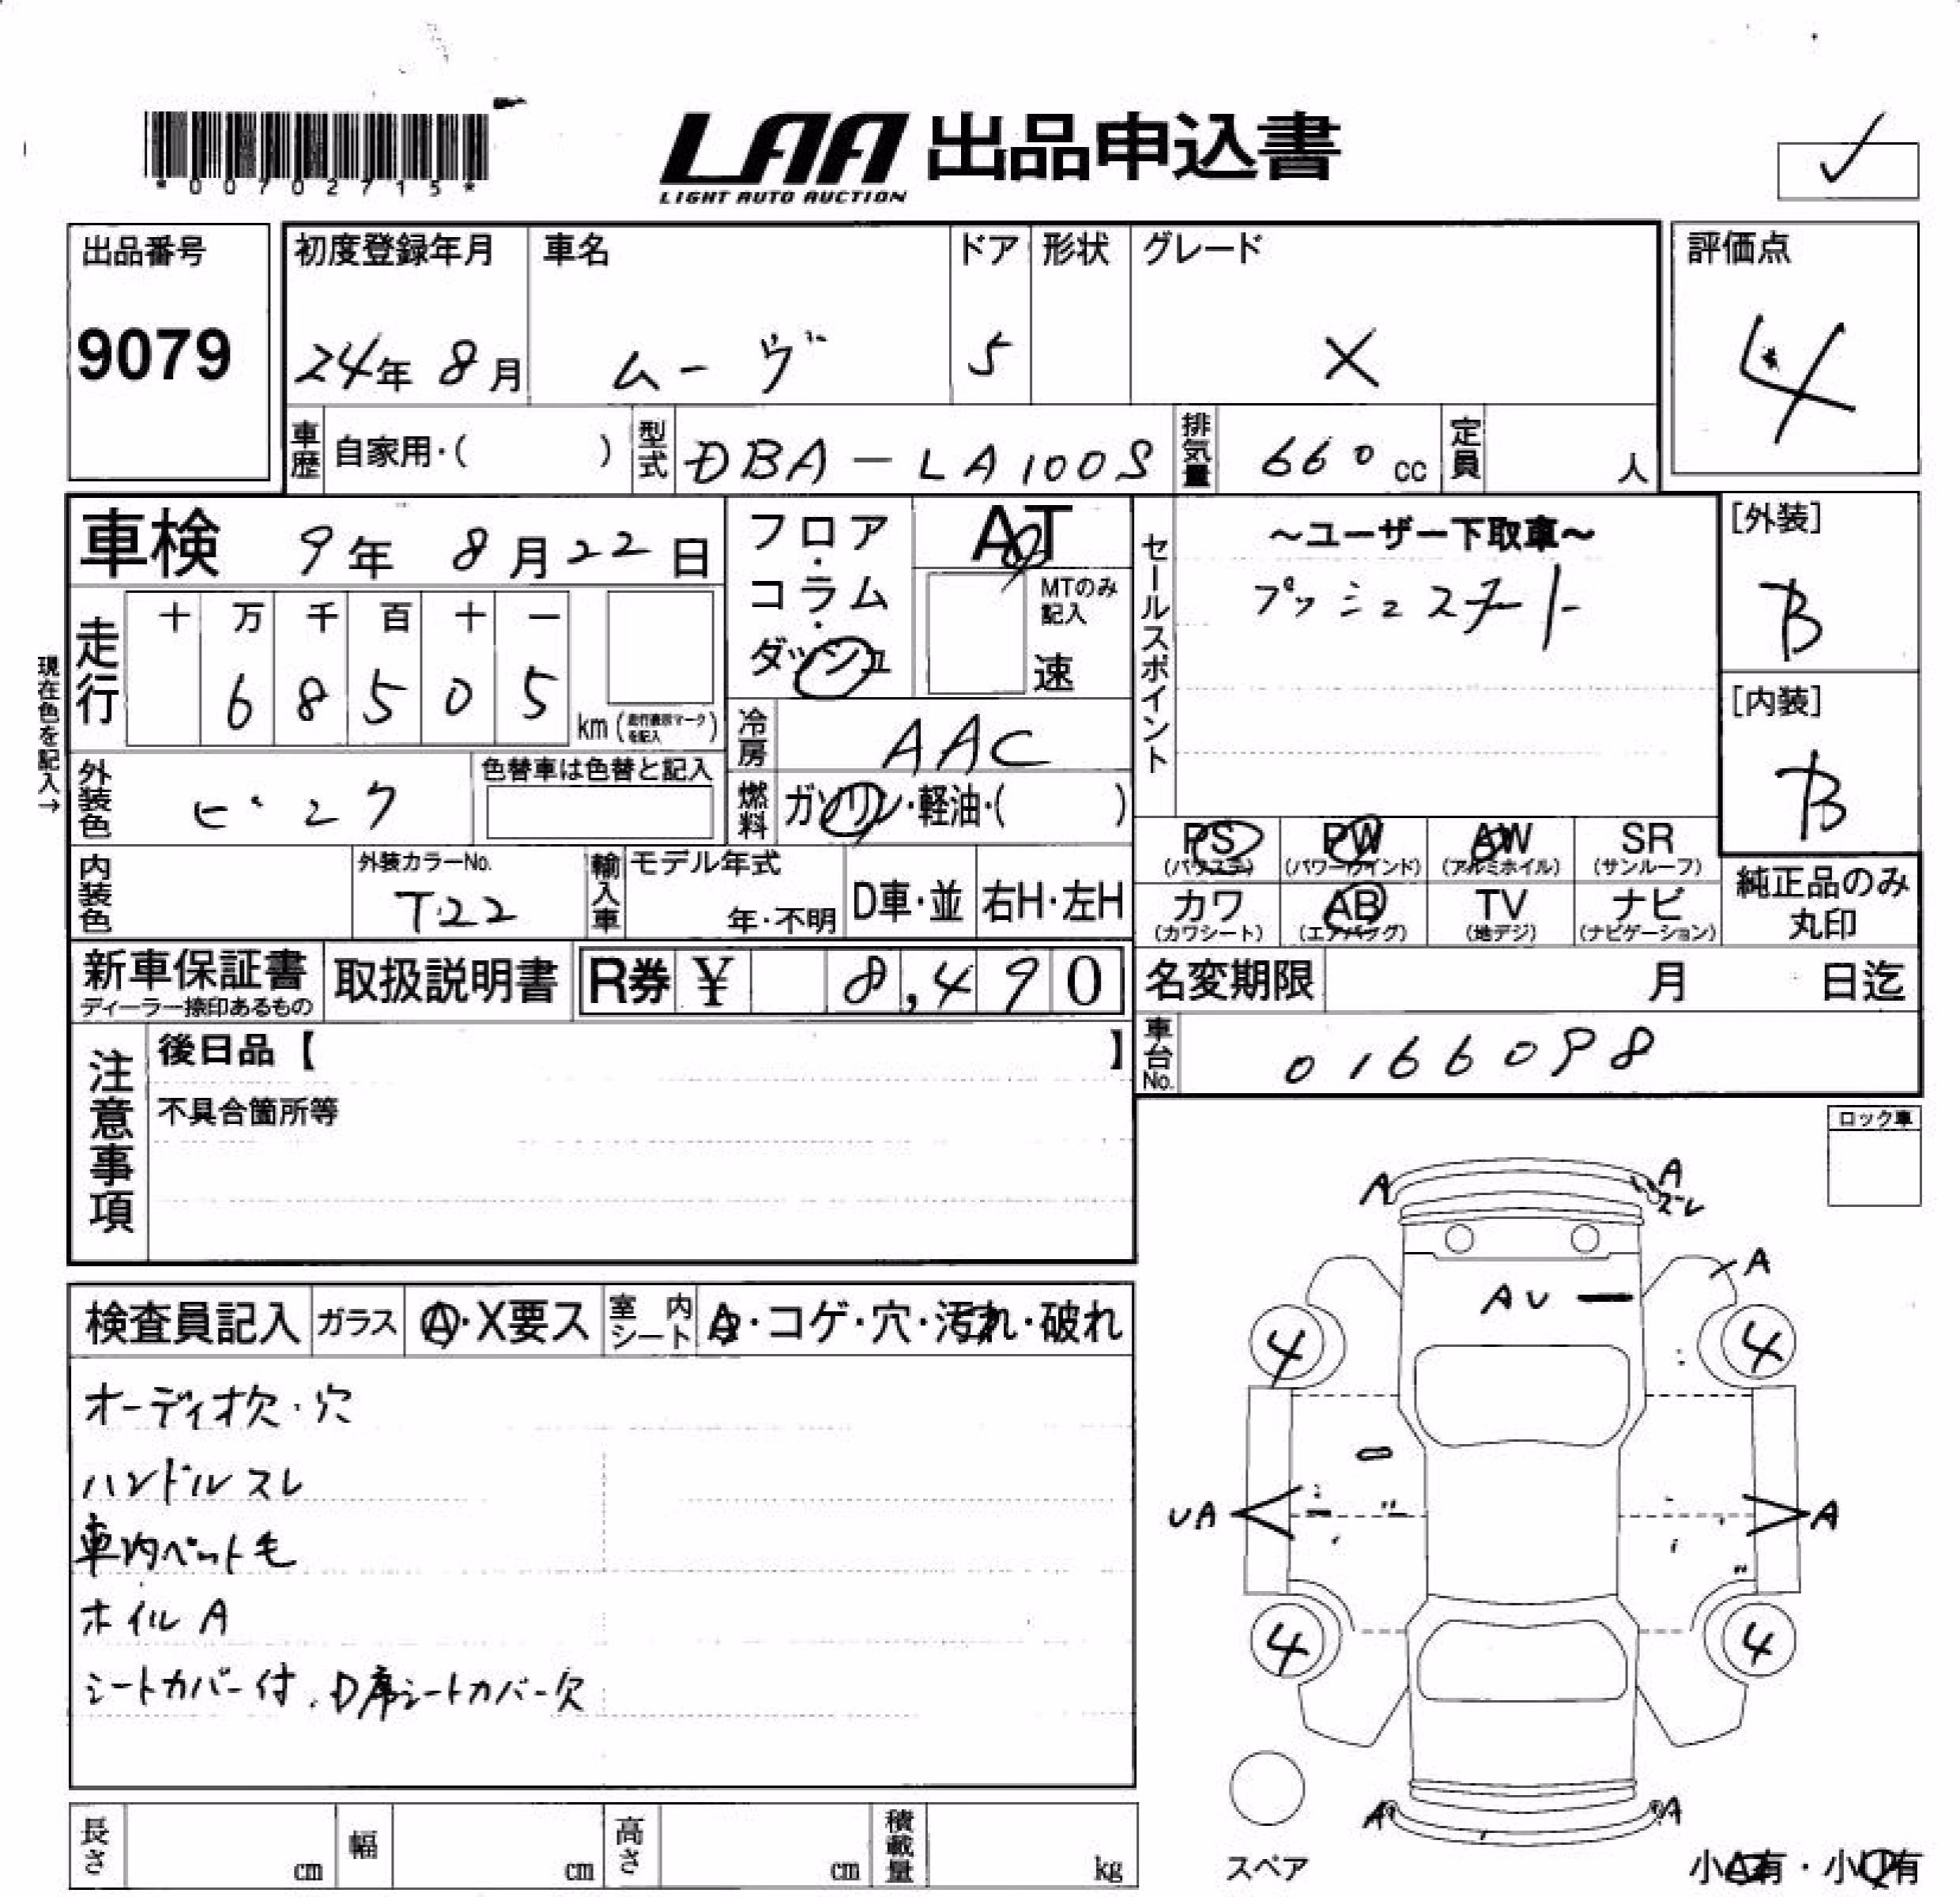 *00702715*
LAA 出品申込書
LIGHT AUTO AUCTION
✓
出品番号
9079
初度登録年月
24年 8月
車名
ムーヴ
ドア
5
形状
グレード
X
評価点
4
車歴 自家用・( )
型式 DBA-LA100S
排気量 660 cc
定員 人
車検 9年 8月22日
フロア・コラム・ダッシュ
AT
MTのみ記入
速
セールスポイント
〜ユーザー下取車〜
プッシュスタート
[外装]
B
[内装]
B
現在色を記入→
走行
十 万 千 百 十 一
6 8 5 0 5
km (走行表示マークを記入)
冷房 AAC
燃料 ガソリン・軽油・( )
外装色 ピンク
色替車は色替と記入
内装色
外装カラーNo.
T22
輸入車
モデル年式
年・不明
D車・並
右H・左H
PS (パワステ)
PW (パワーウインド)
AW (アルミホイル)
SR (サンルーフ)
カワ (カワシート)
AB (エアバッグ)
TV (地デジ)
ナビ (ナビゲーション)
純正品のみ
丸印
新車保証書
ディーラー捺印あるもの
取扱説明書
R券 ¥ 8,490
名変期限 月 日迄
車台No. 0166098
注意事項
後日品【 】
不具合箇所等
ロック車
検査員記入
ガラス A・X要ス
室内シート A・コゲ・穴・汚れ・破れ
オーディオ欠・穴
ハンドルスレ
車内ペット毛
ホイルA
シートカバー付.D席シートカバー欠
A
A
スレ
A
AU
4
4
UA
A
4
4
A
A
スペア
小A有・小U有
長さ cm
幅 cm
高さ cm
積載量 kg